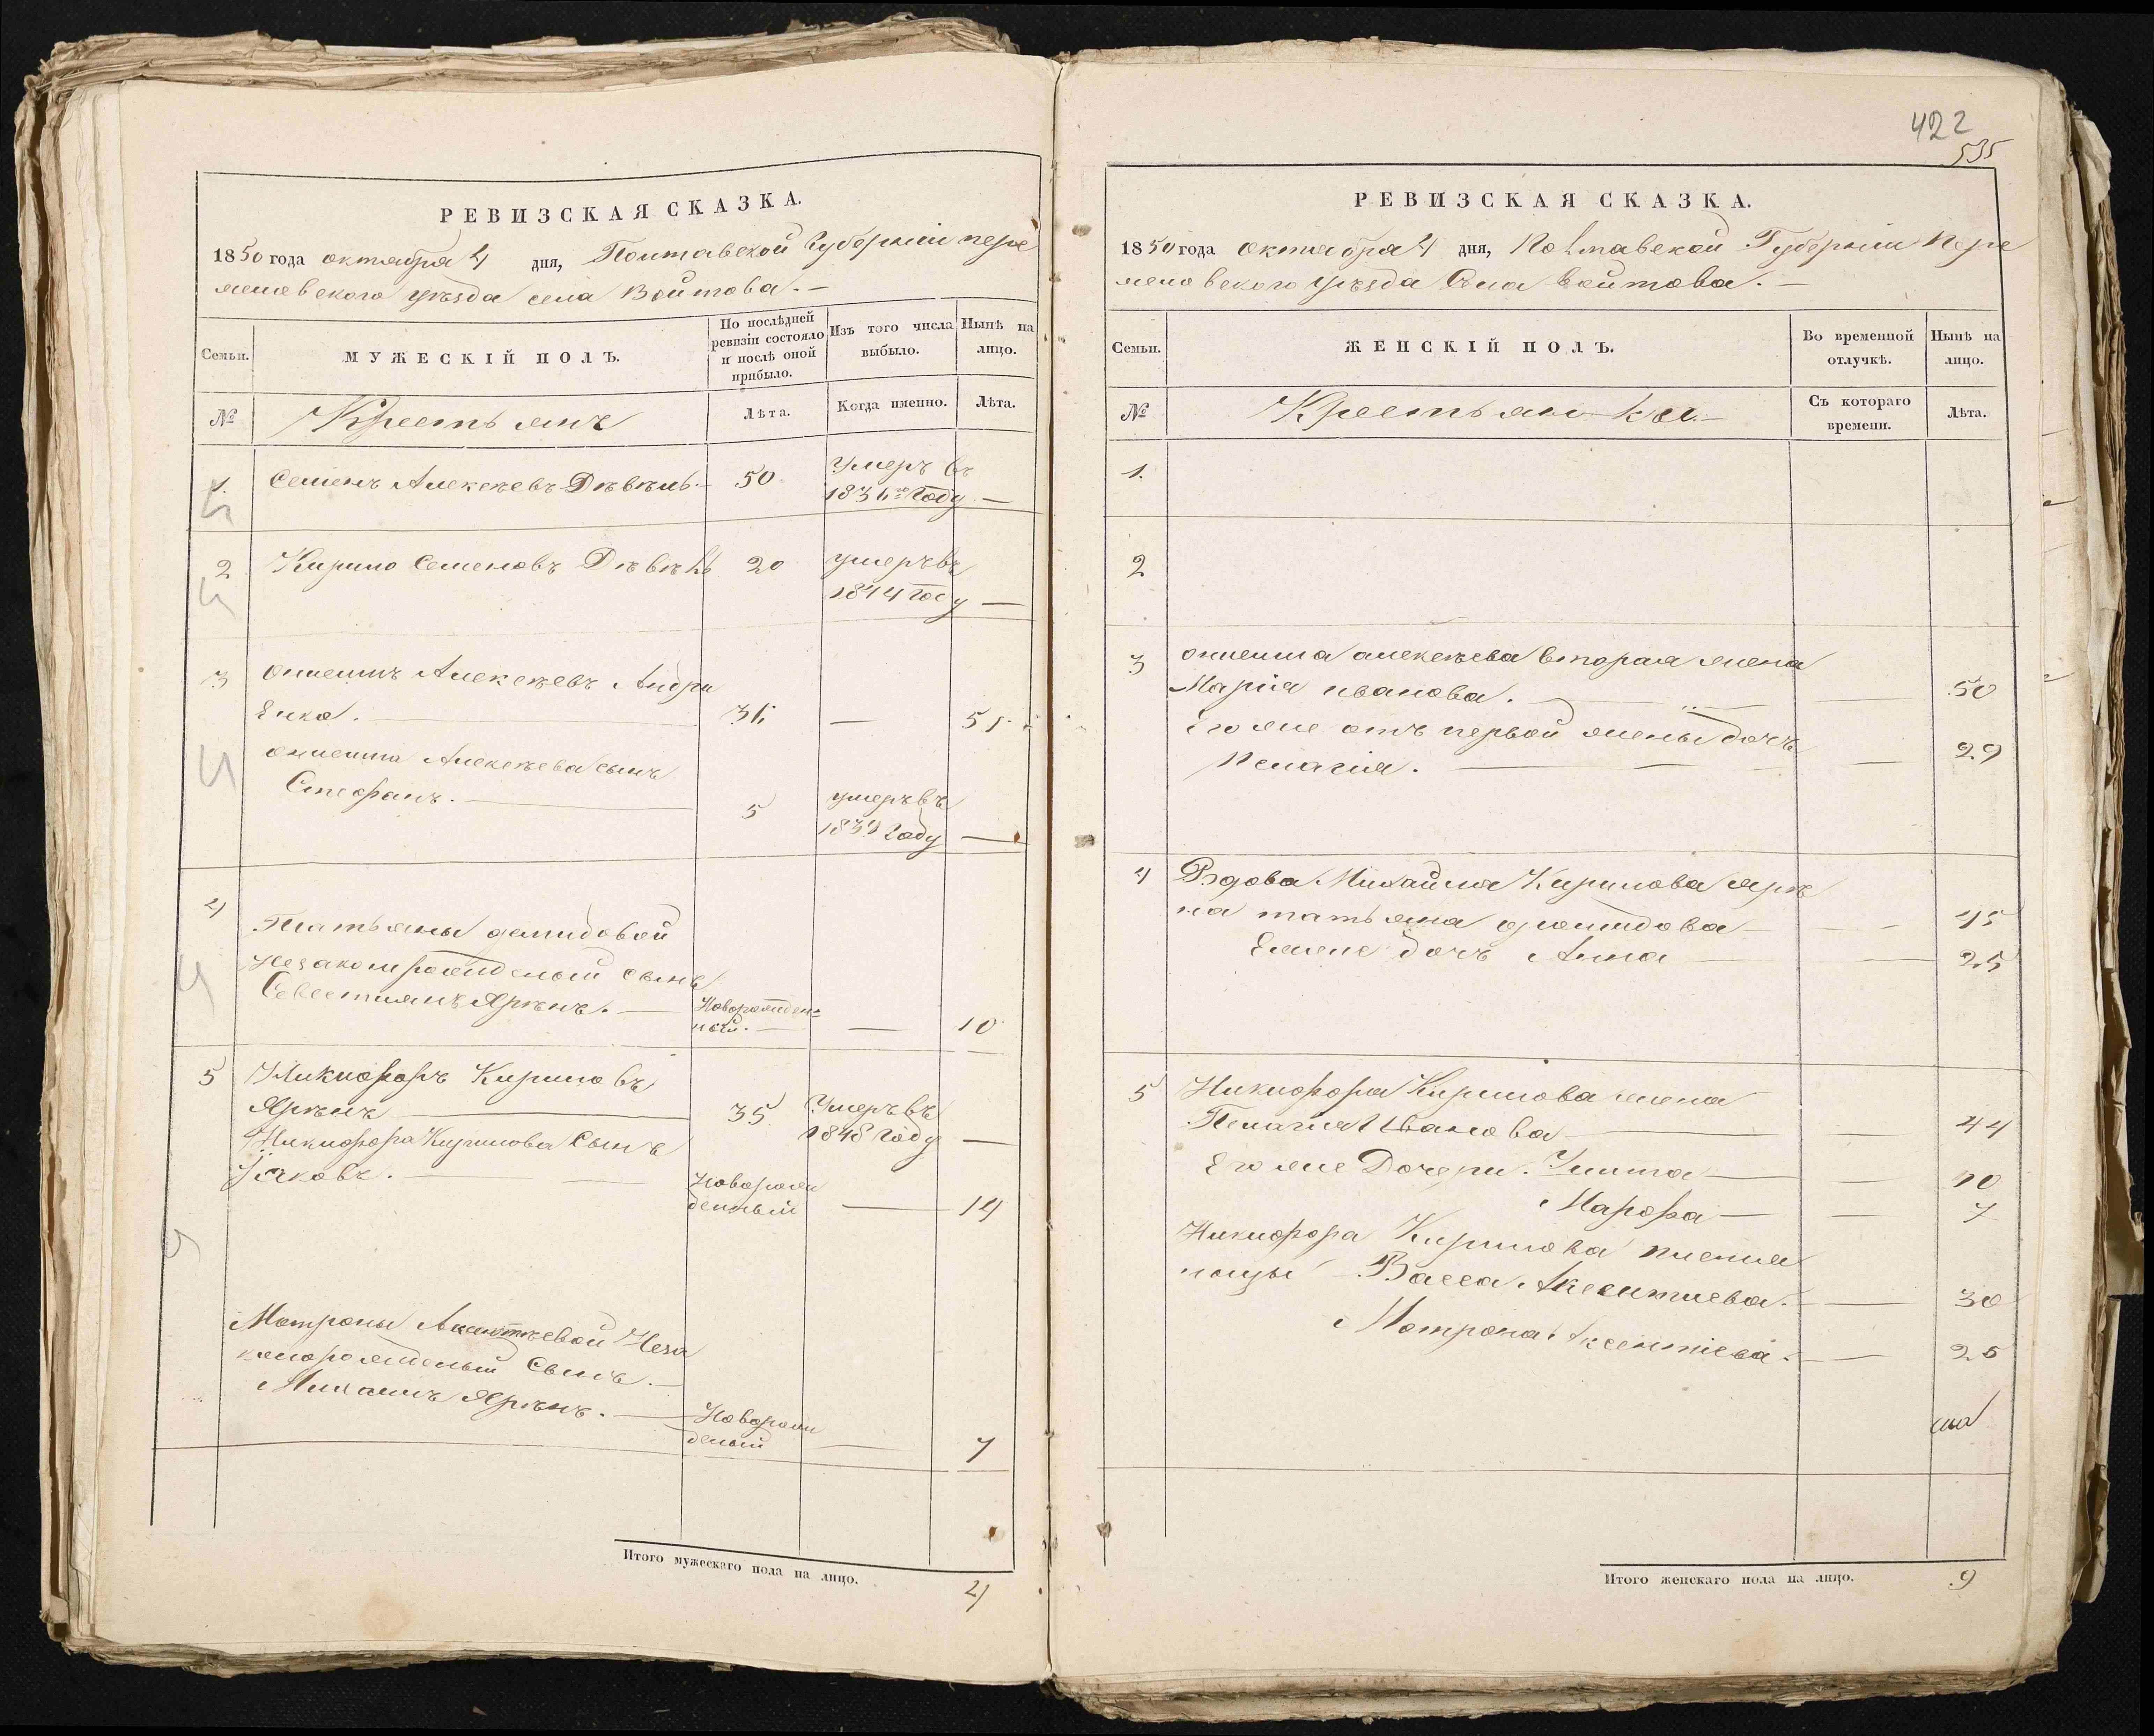 РЕВИЗСКАЯ СКАЗКА.
1850 года октября 4 дня, Полтавской Губернии пере
яславского уѣзда села Войтова. —
Семьи.
МУЖЕСКІЙ ПОЛЪ.
По послѣдней
ревизіи состояло
и послѣ оной
прибыло.
Изъ того числа
выбыло.
Нынѣ на
лицо.
№
Крестьянъ
Лѣта.
Когда именно.
Лѣта.
1. Семенъ Алексѣевъ 50 Умеръ въ
году —
2 Кирило Семеновъ 20 умеръ въ
1844 году —
3 Алексѣевъ Андри
Енко. — 5
Алексѣева сынъ
Стефанъ. — 5 умеръ въ
1839 году —
4
Татьяны демидовой
Незаконорожденый сынъ
Севестиянъ Ярѣнъ. — Новорожден=
ный. — — 10
5 Никифоръ Кириловъ
Ярѣнъ — 35 Умеръ въ
1848 году —
Никифора Кирилова Сынъ
Яковъ. — Новорож
денный — 14
Мотроны Аксентѣевой Неза
конорожденый Сынъ. —
Михаилъ Ярѣнъ. — Новорож
деный — 7
Итого мужескаго пола на лицо. 4
422
535
РЕВИЗСКАЯ СКАЗКА.
1850 года октября 4 дня, Полтавской Губернии Пере
яславского уѣзда Села войтова. —
Семьи.
ЖЕНСКІЙ ПОЛЪ.
Во временной
отлучкѣ.
Нынѣ на
лицо.
№
Крестьянки. —
Съ котораго
времени.
Лѣта.
1.
2
3 алексѣева вторая жена
Марія иванова. — — 50
Его же отъ первой жены дочь
Пелагия. — — 29
4 Вдова Михайла Кирилова Ярѣ
на татьяна — 45
Ея же дочь Анна — 25
5 Никифора Кирилова жена
Пелагия Иванова — — 44
Его же Дочери. Улита — — 10
Марфа — — 7
Никифора Кирилова племя
ницы Васса Аксентиева. — 30
Мотрона Аксентіева. — 25
Итого женскаго пола на лицо. 9